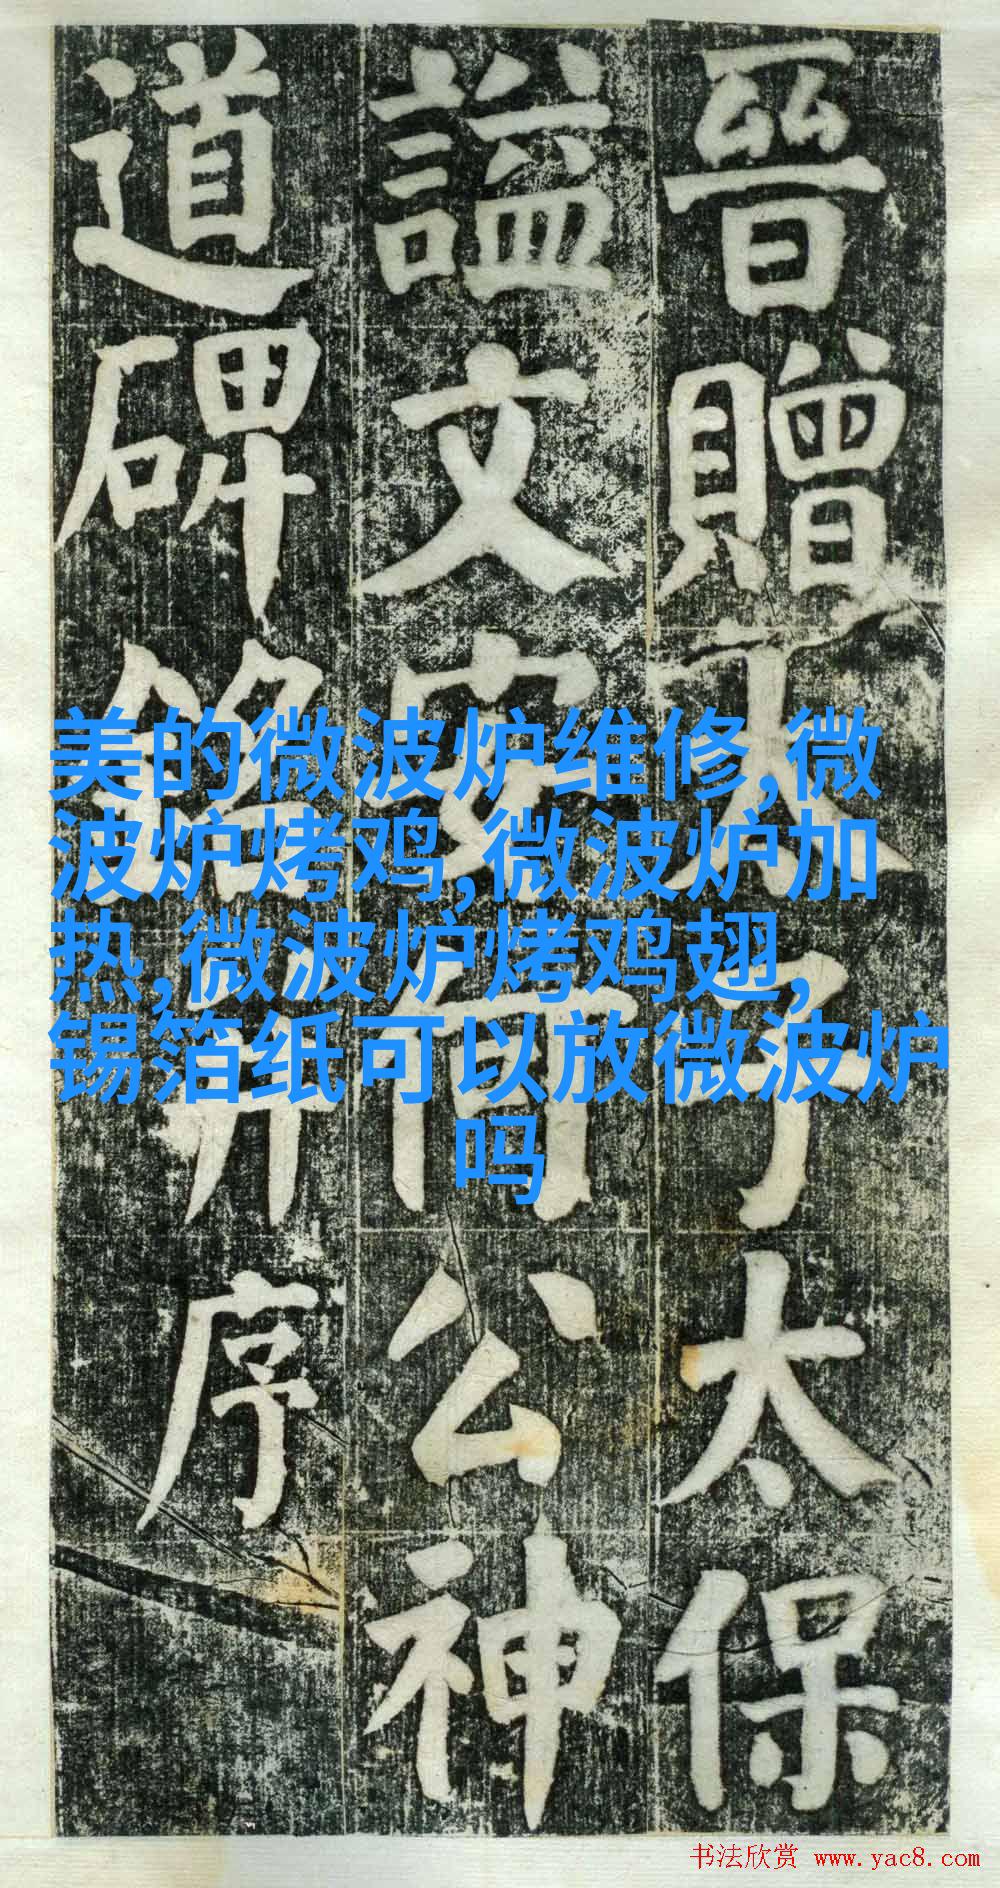 晉贈太子太保
謚文安何公神
道碑銘并序
美的微波炉维修,微
波炉烤鸡,微波炉加
热,微波炉烤鸡翅,
锡箔纸可以放微波炉
吗
书法欣赏 www.yac8.com